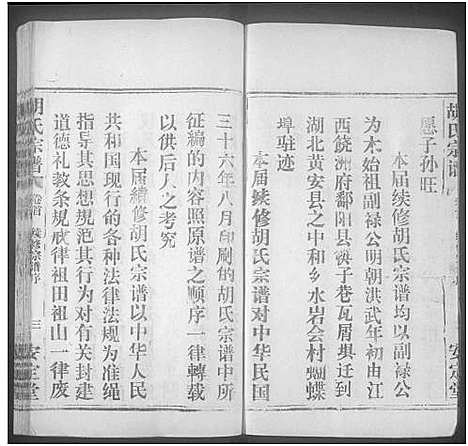 胡氏宗谱
安定堂
愿子孙旺
本届续修胡氏宗谱均以副禄公
为木始祖副禄公明朝洪武年初由江
西饶洲府鄱阳县筷子巷瓦屑坝迁到
湖北黄安县之中和乡水岩会村蝴蝶
埠驻迹
本届续修胡氏宗谱对中华民国
三十六年八月印刷的胡氏宗谱中所
征编的内容照原谱之顺序一律轉载
以供后人之考究
本届續修胡氏宗谱以中华人民
共和国现行的各种法律法规为准绳
指导其思想规范其行为对有关封建
道德礼教条规戒律祖田祖山一律废
胡氏宗谱 卷首 续修宗谱序 三 安定堂